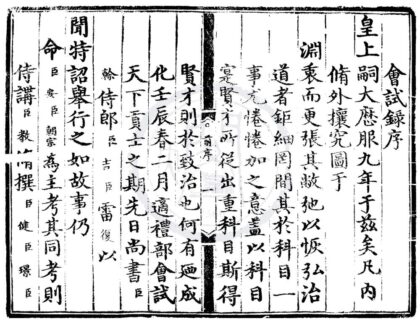 會試錄序
皇上嗣大歷服九年于茲矣凡內
脩外攘究圖于
淵衷而更張其敝弛以恢弘治
道者鉅細罔間其於科目一
事尤惓惓加之意蓋以科目
寔賢才所從出重科目斯得
會錄序
一
賢才則於致治也何有廼成
化壬辰春二月適禮部會試
天下貢士之期先日尚書臣
翰侍郎臣吉臣雷復以
聞特詔舉行之如故事仍
命臣安臣朝宗為主考其同考則
侍講臣教脩撰臣健臣環臣